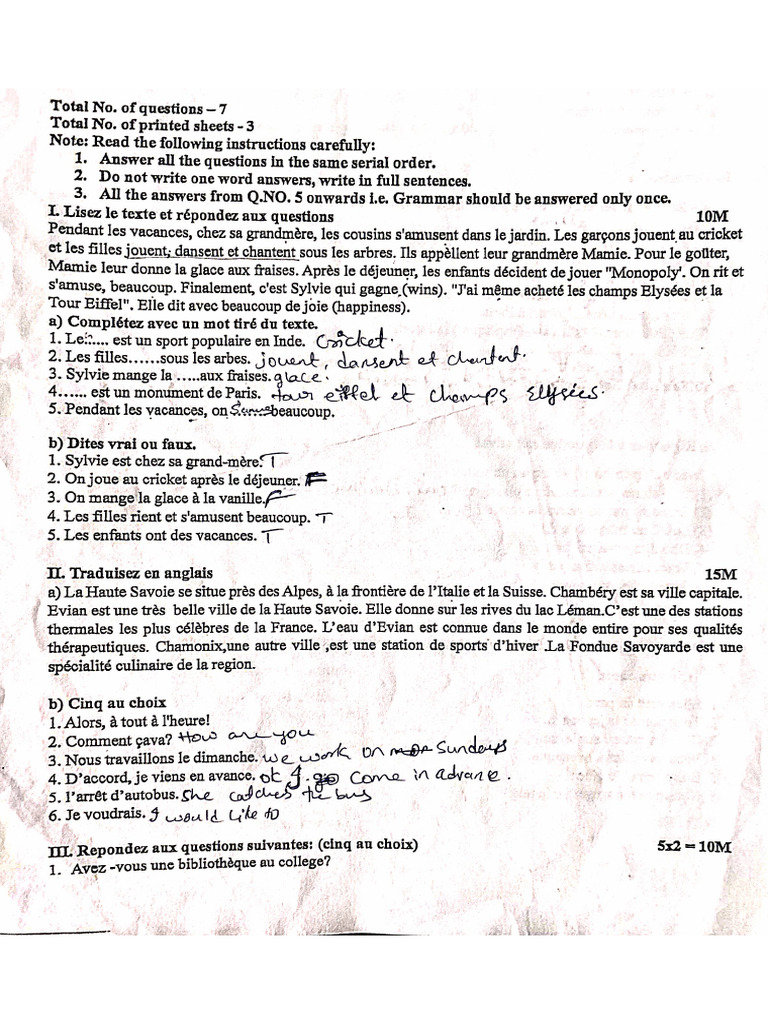 Total No. of questions – 7
Total No. of printed sheets - 3
Note: Read the following instructions carefully:
1. Answer all the questions in the same serial order.
2. Do not write one word answers, write in full sentences.
3. All the answers from Q.NO. 5 onwards i.e. Grammar should be answered only once.
I. Lisez le texte et répondez aux questions 10M
Pendant les vacances, chez sa grandmère, les cousins s'amusent dans le jardin. Les garçons jouent au cricket
et les filles jouent, dansent et chantent sous les arbres. Ils appèllent leur grandmère Mamie. Pour le goûter,
Mamie leur donne la glace aux fraises. Après le déjeuner, les enfants décident de jouer "Monopoly'. On rit et
s'amuse, beaucoup. Finalement, c'est Sylvie qui gagne (wins). "J'ai même acheté les champs Elysées et la
Tour Eiffel". Elle dit avec beaucoup de joie (happiness).
a) Complétez avec un mot tiré du texte.
1. Le..... est un sport populaire en Inde. Cricket.
2. Les filles......sous les arbes. jouent, dansent et chantent.
3. Sylvie mange la .....aux fraises. glace.
4...... est un monument de Paris. tour eiffel et champs Elysées.
5. Pendant les vacances, on beaucoup.
b) Dites vrai ou faux.
1. Sylvie est chez sa grand-mère. T
2. On joue au cricket après le déjeuner. F
3. On mange la glace à la vanille. F
4. Les filles rient et s'amusent beaucoup. T
5. Les enfants ont des vacances. T
II. Traduisez en anglais 15M
a) La Haute Savoie se situe près des Alpes, à la frontière de l'Italie et la Suisse. Chambéry est sa ville capitale.
Evian est une très belle ville de la Haute Savoie. Elle donne sur les rives du lac Léman.C'est une des stations
thermales les plus célèbres de la France. L'eau d'Evian est connue dans le monde entire pour ses qualités
thérapeutiques. Chamonix,une autre ville ,est une station de sports d'hiver .La Fondue Savoyarde est une
spécialité culinaire de la region.
b) Cinq au choix
1. Alors, à tout à l'heure!
2. Comment çava? How are you
3. Nous travaillons le dimanche. we work on Sundays
4. D'accord, je viens en avance. ok I go come in advance.
5. l'arrêt d'autobus. She catches the bus
6. Je voudrais. I would like to
III. Repondez aux questions suivantes: (cinq au choix) 5x2 = 10M
1. Avez -vous une bibliothèque au college?